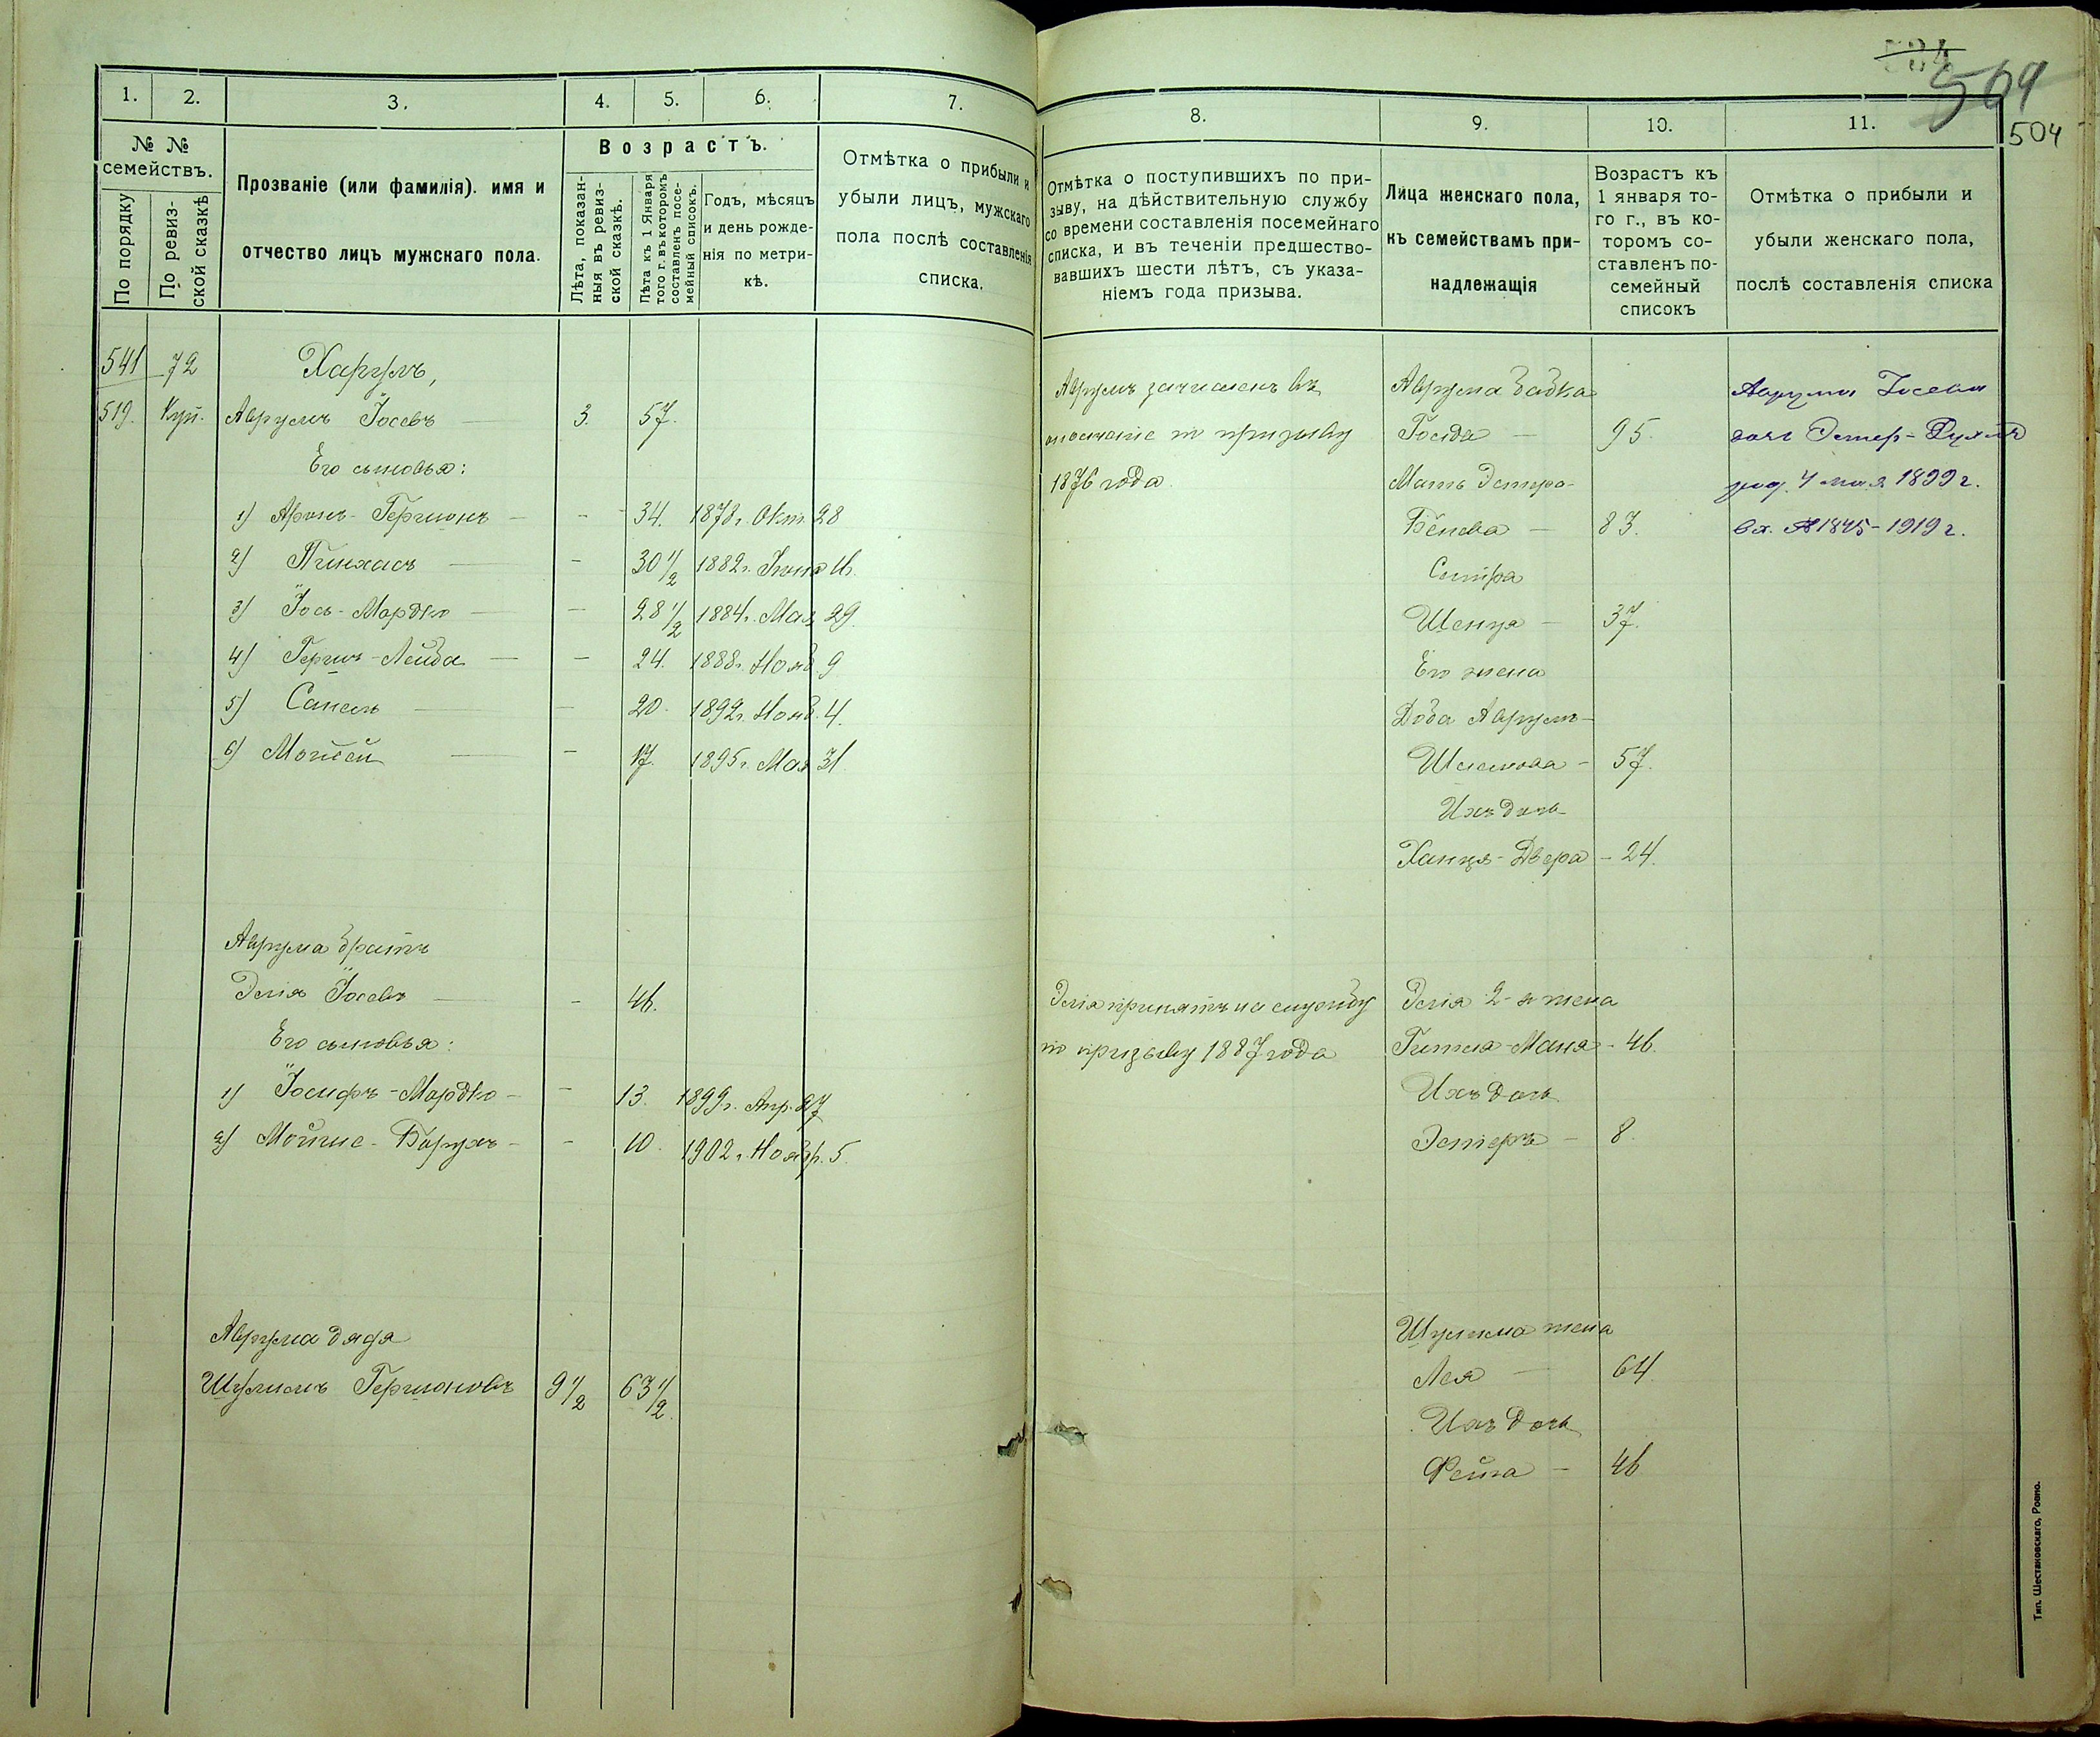 1. 2. 3. 4. 5. 6. 7.
№ № семействъ.
По порядку
По ревизской сказкѣ
Прозваніе (или фамилія). имя и
отчество лицъ мужскаго пола.
Возрастъ.
Лѣта, показан-
ныя въ ревиз-
ской сказкѣ.
Лѣта къ 1 Января
того г. въ которомъ
составленъ посе-
мейный списокъ.
Годъ, мѣсяцъ
и день рожде-
нія по метри-
кѣ.
Отмѣтка о прибыли и
убыли лицъ, мужскаго
пола послѣ составленія
списка.
541 72 Харгумъ,
519. Куп. Аврумъ Іосевъ 3. 57.
Его сыновья:
1) Аронъ-Гершонъ — - 34. 1878 г. Окт. 28
2) Пинхасъ — - 30 1/2 1882 г. Іюня 16.
3) Іось-Мордко — - 28 1/2 1884 г. Мая 29.
4) Гершъ-Лейба — - 24. 1888 г. Нояб. 9
5) — - 20. 1892 г. Нояб. 4.
6) Мойсей — - 17. 1895 г. Мая 31.
Аврума братъ
Элія Іосевъ — - 46.
Его сыновья:
1) Іосифъ-Мордко - - 13. 1899 г. Апр. 27
2) Мойше-Борухъ - - 10. 1902 г. Нояб. 5.
Аврума дядя
Шулимъ Гершоновъ 9 1/2 63 1/2.
584
504
504
8. 9. 10. 11.
Отмѣтка о поступившихъ по при-
зыву, на дѣйствительную службу
со времени составленія посемейнаго
списка, и въ теченіи предшество-
вавшихъ шести лѣтъ, съ указа-
ніемъ года призыва.
Лица женскаго пола,
къ семействамъ при-
надлежащія
Возрастъ къ
1 января то-
го г., въ ко-
торомъ со-
ставленъ по-
семейный
списокъ
Отмѣтка о прибыли и
убыли женскаго пола,
послѣ составленія списка
Аврумъ зачисленъ въ Аврума бабка Аврума Іосева
ополченіе по призыву 95. дочь Эстер-Рухля
1876 года Мать Эстра- род. 4 мая 1899 г.
83. вх. № 1845-1919 г.
Сестра
Шенця — 37.
Его жена
Доба Аврум-
Шлемова - 57.
Ихъ дочь
Ханця-Двера - 24.
Элія принятъ на службу Элія 2-я жена
по призыву 1887 года Гитля-Маня - 46.
Ихъ дочь
Эстеръ — 8.
Шулима жена
Лея — 64
Ихъ дочь
Фейга — 46
Тип. Шестаковскаго, Ровно.